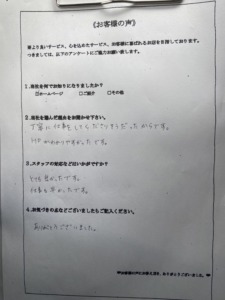 《お客様の声》
皆より良いサービス、心を込めたサービス、お客様に喜ばれるお店を目指しております。
つきましては、以下のアンケートにご協力お願い致します。
1.当社を何でお知りになりましたか?
□ホームページ □ご紹介 □その他
2.当社を選んだ理由をお聞かせ下さい。
丁寧に仕事をしてくださりそうだったからです。
HPがわかりやすかったです。
3.スタッフの対応などはいかがですか?
とても良かったです。
仕事も早かったです。
4.お気づきの点などございましたらご記入ください。
ありがとうございました。
ありがとうございました。